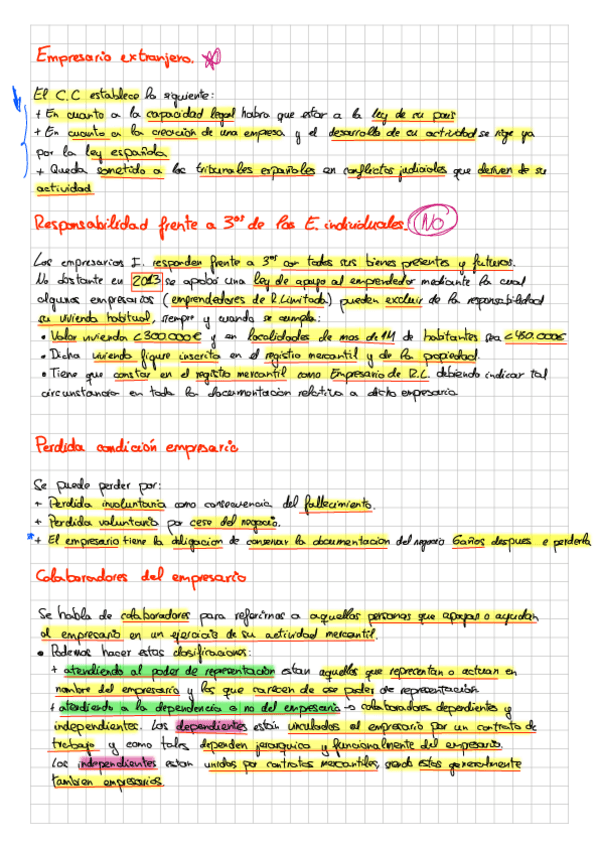 Empresario extranjero.
El C.C establece lo siguiente:
+ En cuanto a la capacidad legal habra que estar a la ley de su pais
+ En cuanto a la creación de una empresa y el desarrollo de su actividad se rige ya
por la ley española
+ Queda sometido a los tribunales españoles en conflictos judiciales que deriven de su
actividad
Responsabilidad frente a 3ºs de los E. individuales. NO
Los empresarios I. responden frente a 3ºs con todos sus bienes presentes y futuros.
No obstante en 2013 se aprobó una ley de apoyo al emprendedor mediante la cual
algunos empresarios (emprendedores de R.Limitada) pueden excluir de la responsabilidad
su vivienda habitual, siempre y cuando se cumpla:
• Valor vivienda <300000€ y en localidades de mas de 1M de habitantes sea <450.000€
• Dicha vivienda figure inscrita en el registro mercantil y de la propiedad.
• Tiene que constar en el registro mercantil como Empresario de R.L. debiendo indicar tal
circunstancia en toda la documentacion relativa a dicho empresario
Perdida condición empresario
Se puede perder por:
+ Perdida involuntaria como consecuencia del fallecimiento.
+ Perdida voluntaria por cese del negocio.
* + El empresario tiene la obligacion de conservar la documentacion del negocio 6años despues e perderla
Colaboradores del empresario
Se habla de colaboradores para referirnos a aquellas personas que apoyan o ayudan
al empresario en un ejercicio de su actividad mercantil.
• Podemos hacer estas clasificaciones:
+ atendiendo al poder de representación estan aquellos que representan o actuan en
nombre del empresario y los que carecen de ese poder de representación
+ atendiendo a la dependencia o no del empresario → colaboradores dependientes y
independientes. Los dependientes están vinculados al empresario por un contrato de
trabajo y como tales dependen jerarquica y funcionalmente del empresario.
Los independientes estan unidos por contratos mercantiles, siendo estos generalmente
tambien empresarios.